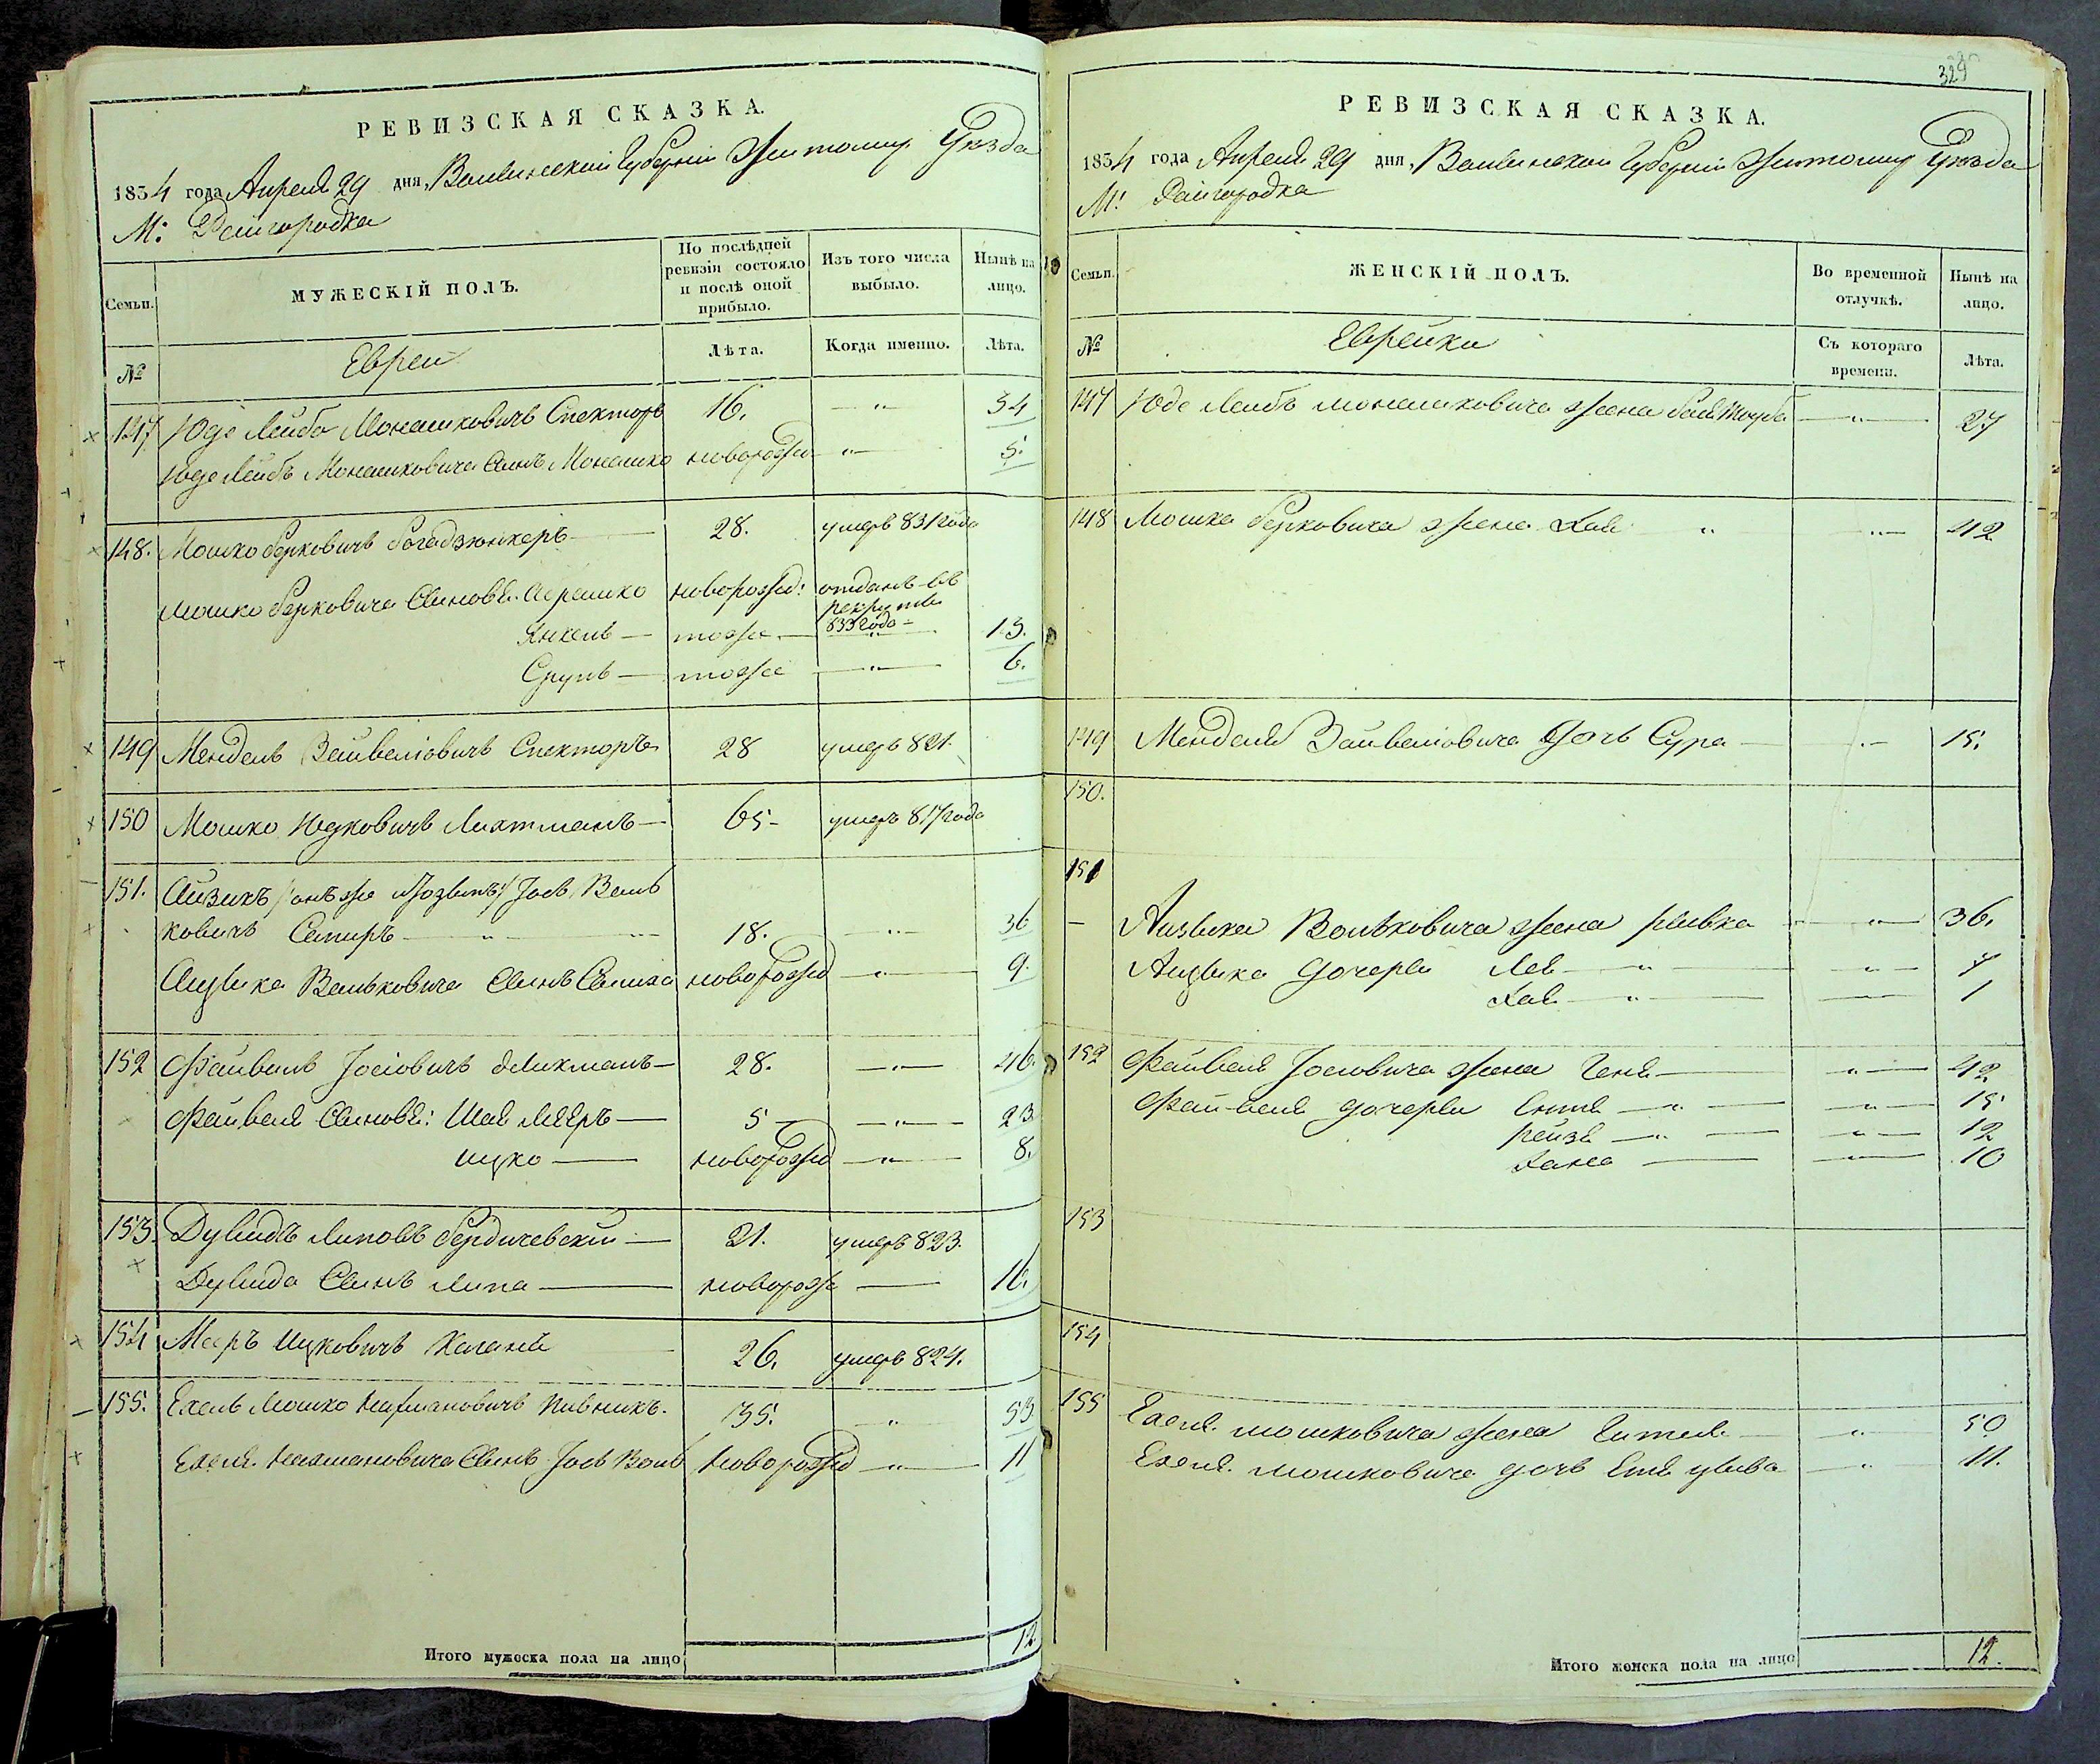 РЕВИЗСКАЯ СКАЗКА.
1834 года Апреля 29 дня, Волынской Губерніи Житомир Уѣзда
М: Райгородка
Семьи.
МУЖЕСКІЙ ПОЛЪ.
По послѣдней ревизіи состояло и послѣ оной прибыло.
Изъ того числа выбыло.
Нынѣ на лицо.
№
Евреи
Лѣта.
Когда именно.
Лѣта.
147 Юде Лейбо Монашковичъ Спекторъ 16. — " — 34
Юде Лейбъ Монашковича Сынъ Монашко новорожд — " — 5.
148. Мошко Берковичъ — 28. умеръ 831 года
Мошко Берковича Сыновья новорожд: отданъ въ рекруты 833 года —
Янкель — тоже — " — 13.
Срулъ — тоже — " — 6.
149 Мендель Зайвеліовичъ Спекторъ 28 умеръ 821.
150 Мошко Юдковичъ Лихтманъ — 65 — умеръ 817 года
151. Айзикъ /: онъ же :/ Іосъ Воль
ковичъ Сапиръ — " — 18. — " — 36
Айзика Вольковича Сынъ новорожд — " — 9.
152 Файвель Іосіовичъ — 28. — " — 46.
Файвеля Сыновья: Шая Мееръ — 5 — " — 23
Ицко — новорожд — " — 8.
153 Дувидъ Липовъ Бердичевскій — 21. умеръ 823.
Дувида Сынъ Липа — новорожд — 16.
154 Мееръ Ицковичъ 26. умеръ 824.
155. Ехель Мошко Нахмановичъ Пивникъ. 35. " 53
Ехеля Нахмановича Сынъ Іосъ Воль Новорожд — " — 11
Итого мужеска пола на лицо 12.
329
РЕВИЗСКАЯ СКАЗКА.
1834 года Апреля 29 дня, Волынской Губерніи Житомир Уѣзда
М: Райгородка
Семьи.
ЖЕНСКІЙ ПОЛЪ.
Во временной отлучкѣ.
Нынѣ на лицо.
№
Еврейки
Съ котораго времени.
Лѣта.
147 Юде Лейбъ Монашковича жена — " — 27
148 Мошка Берковича жена Хая " — " — 42
149 Менделя Зайвеліовича дочь Сура — " — 15.
150.
151
— Айзика Вольковича жена Ривка — " — 36.
Айзика дочери Лея — " — " — 4
Хая — " — 1
152 Файвеля Іосіовича жена Геня — " — 42
Файвеля дочери Ентя — " — " — 15
Рейзя — " — " — 12
Ханa — " — 10
153
154
155 Ехеля Мошковича жена Гителя — " 50
Ехеля Мошковича дочь Етя Цыва — " — 11.
Итого женска пола на лицо 12.